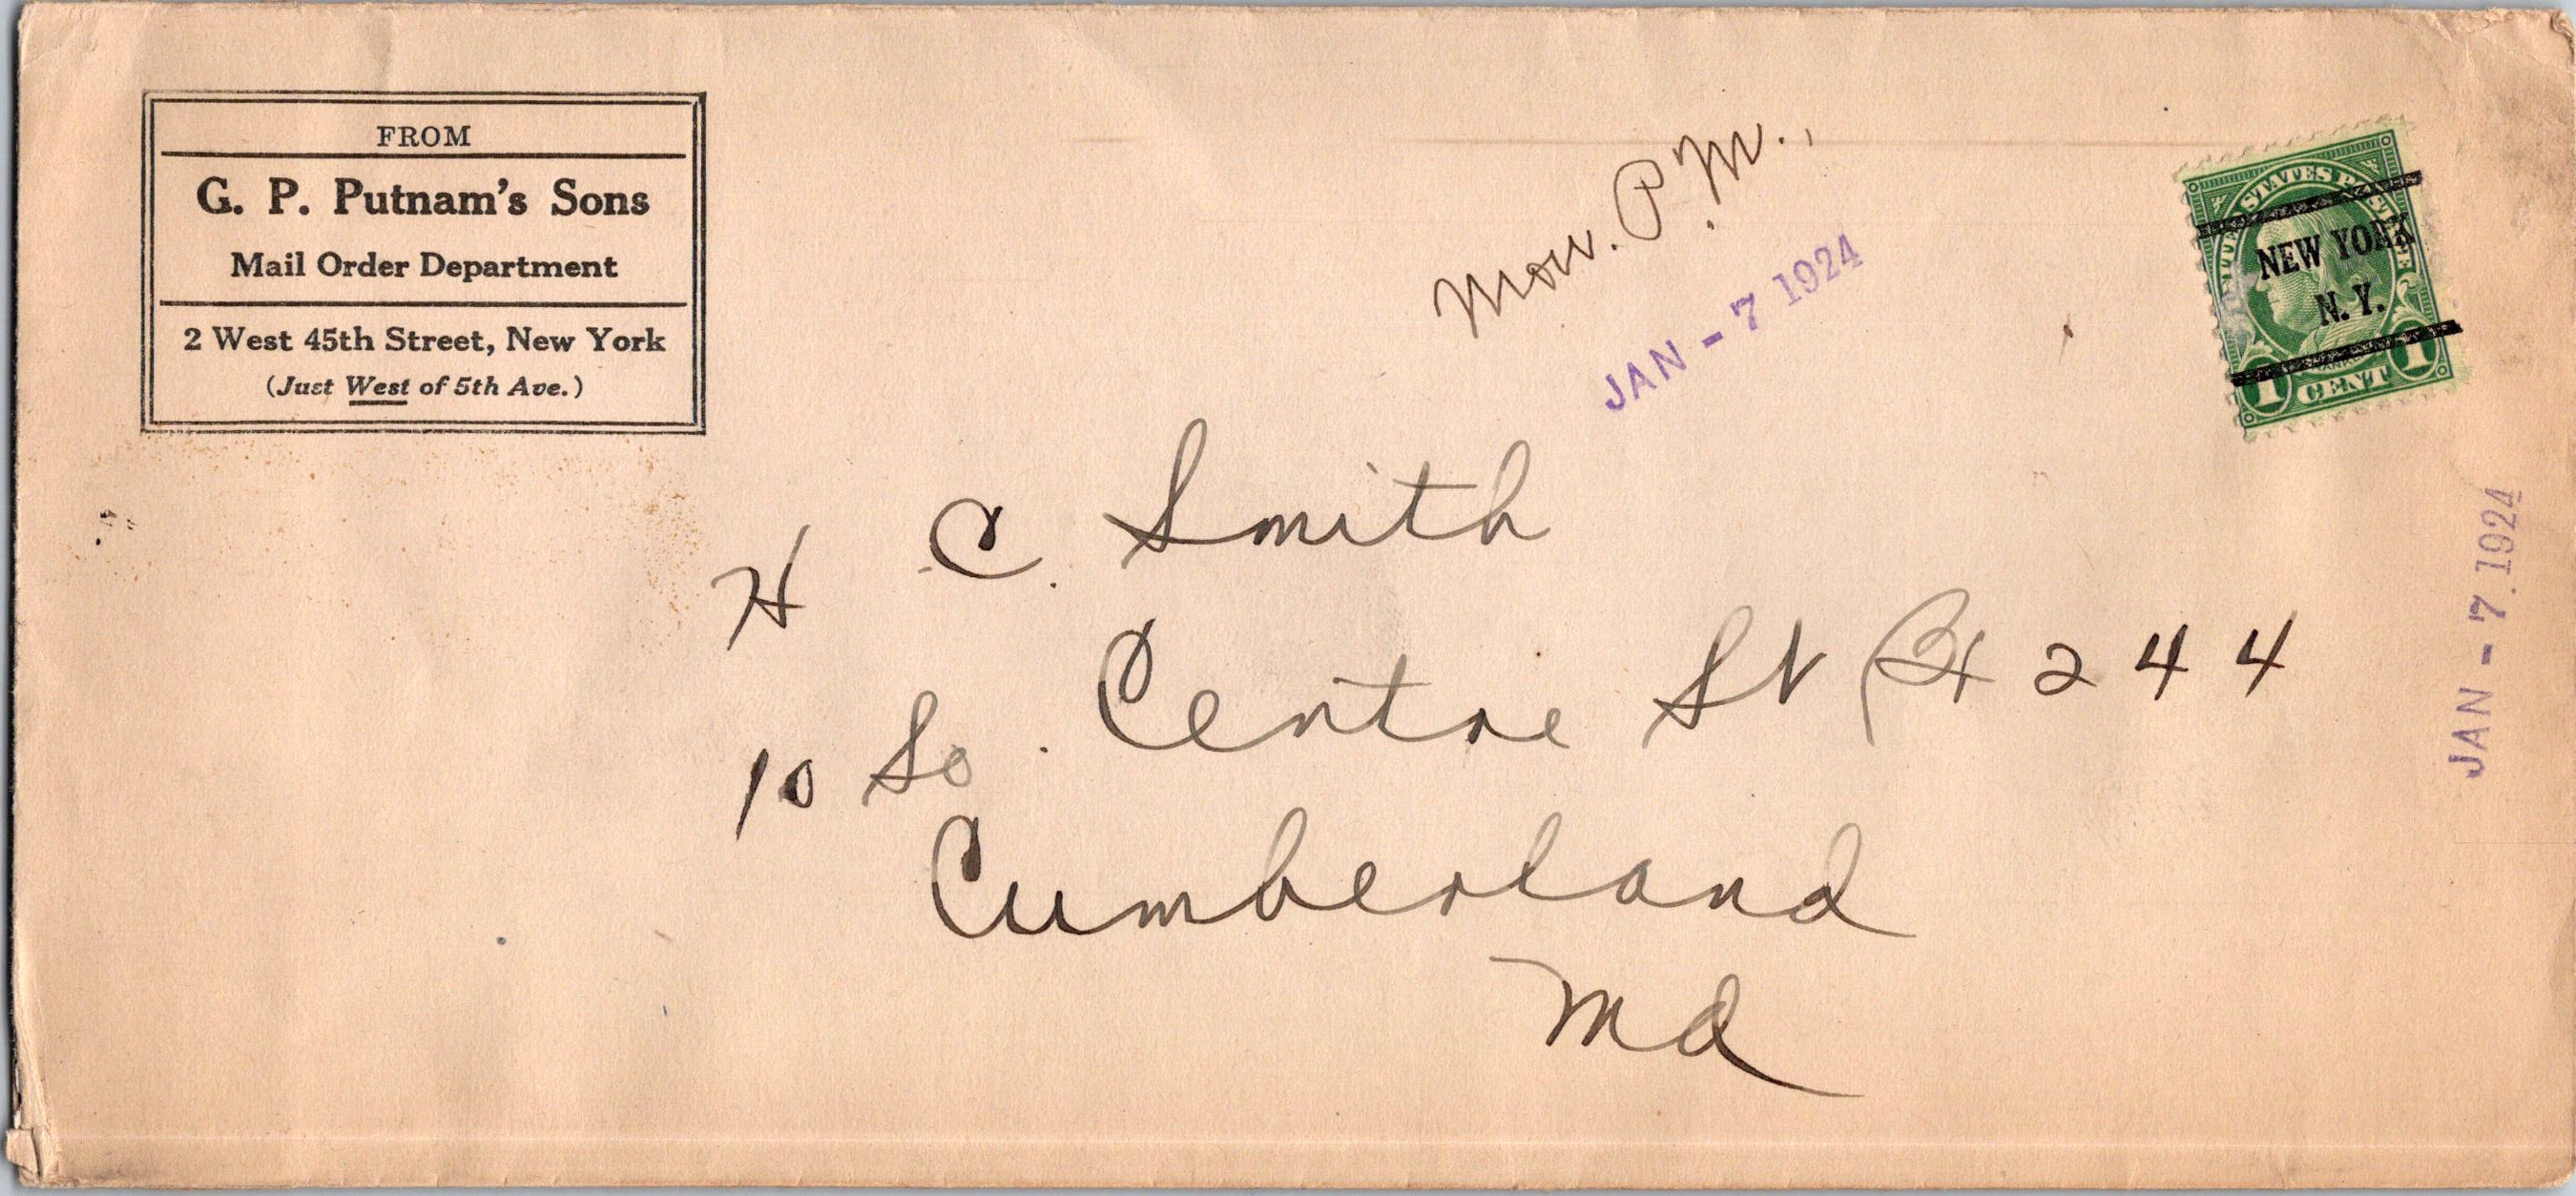 FROM
G. P. Putnam's Sons
Mail Order Department
2 West 45th Street, New York
(Just West of 5th Ave.)
Mon. P.M.,
JAN - 7 1924
UNITED STATES POSTAGE
NEW YORK
N. Y.
1 CENT 1
H C. Smith
10 So. Centre St Bx 244
Cumberland
Md
JAN - 7 1924